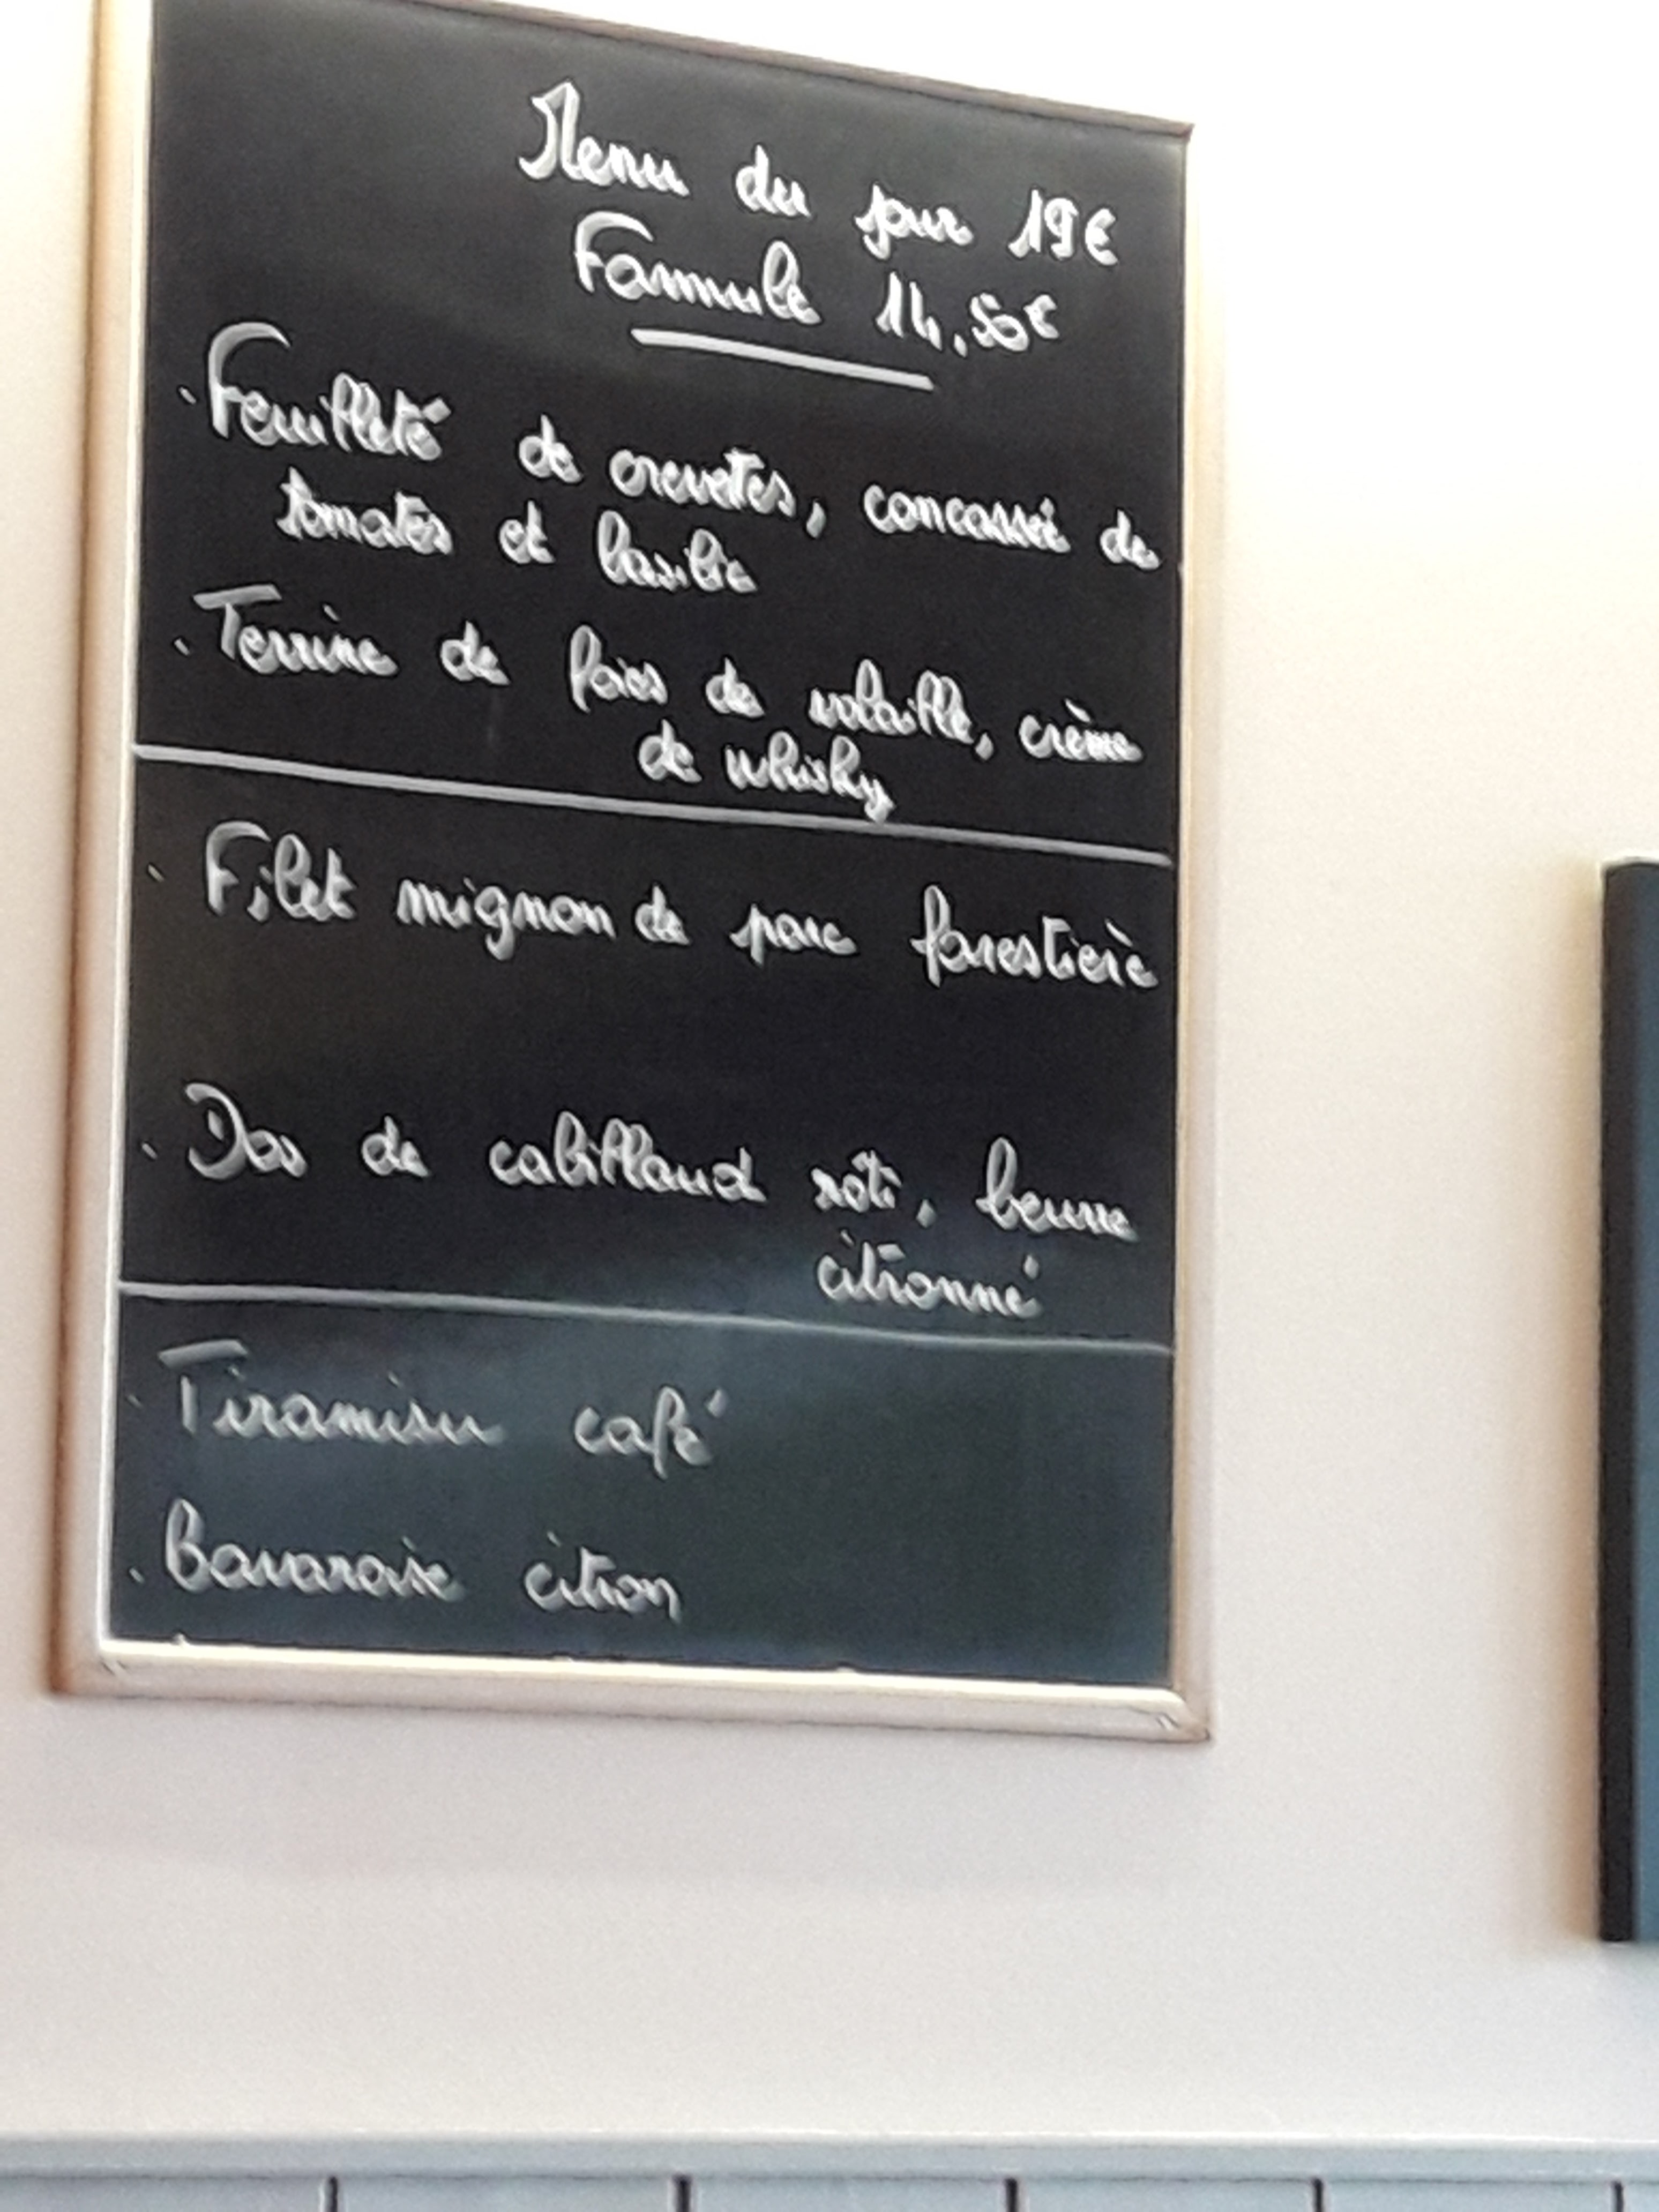 Menu du jour 19€
Formule 14,50€
. Feuilleté de crevettes, concassé de
tomates et basilic
. Terrine de foies de volaille, crème
de whisky
. Filet mignon de porc forestière
. Dos de cabillaud rôti, beurre
citronné
. Tiramisu café
. Bavaroise citron